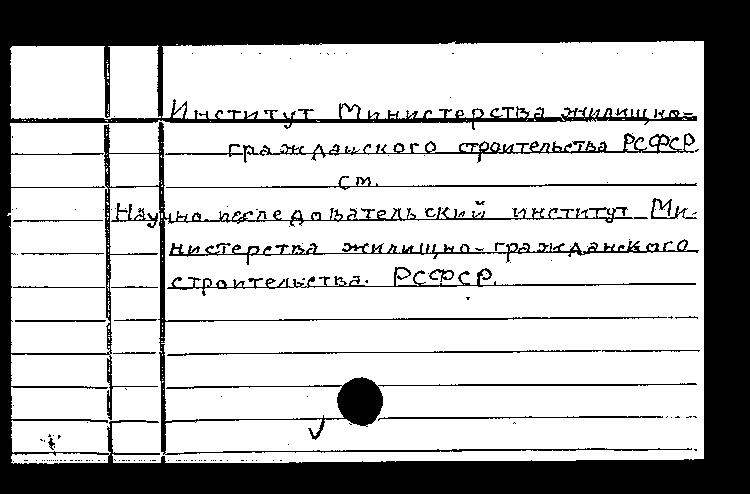 Институт Министерства жилищно-
гражданского строительства РСФСР
см.
Научно-исследовательский институт Ми-
нистерства жилищно-гражданского
строительства. РСФСР.